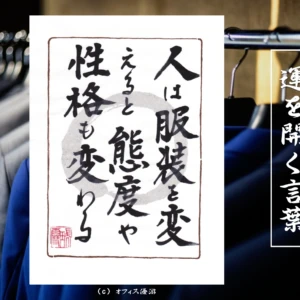 人は服装を変
えると態度や
性格も変わる
運を開く言葉
(c) オフィス湧沼